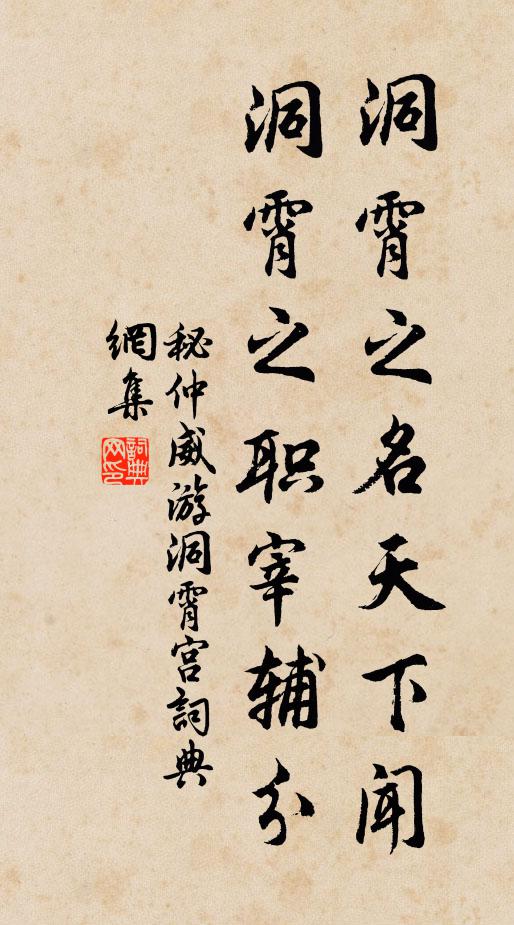 洞霄之名天下闻
洞霄之职宰辅分
秘仲威游洞霄宫詞典
網集
詞典網印